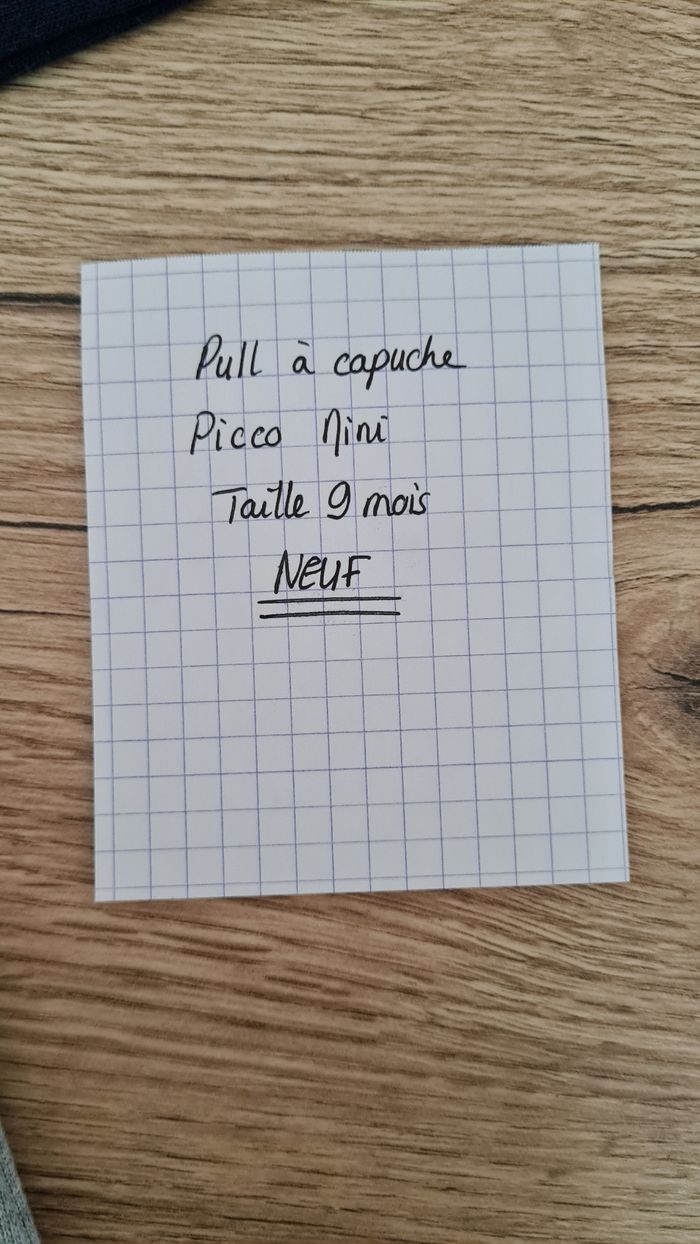 Pull à capuche
Picco Mini
Taille 9 mois
NEUF